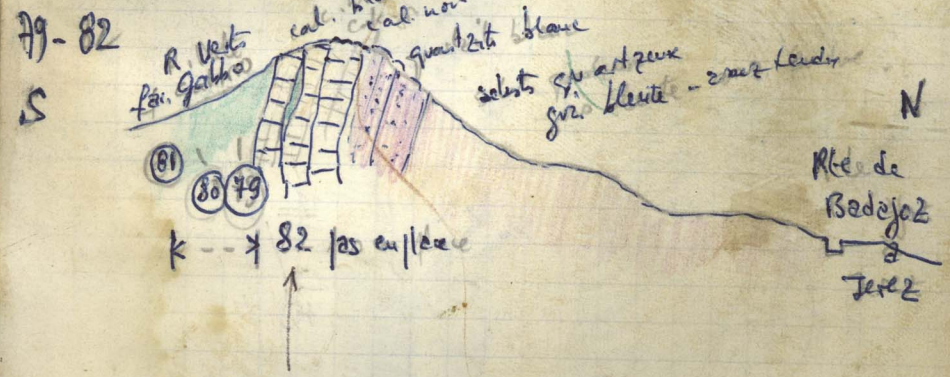 79-82
R. Verts
fai. Gabbro
cal.
cal. noir
quartzite blanc
schists quartzeux
gris bleuté
S
N
Rte de
Badajoz
à
Jerez
81
80
79
82 pas en place